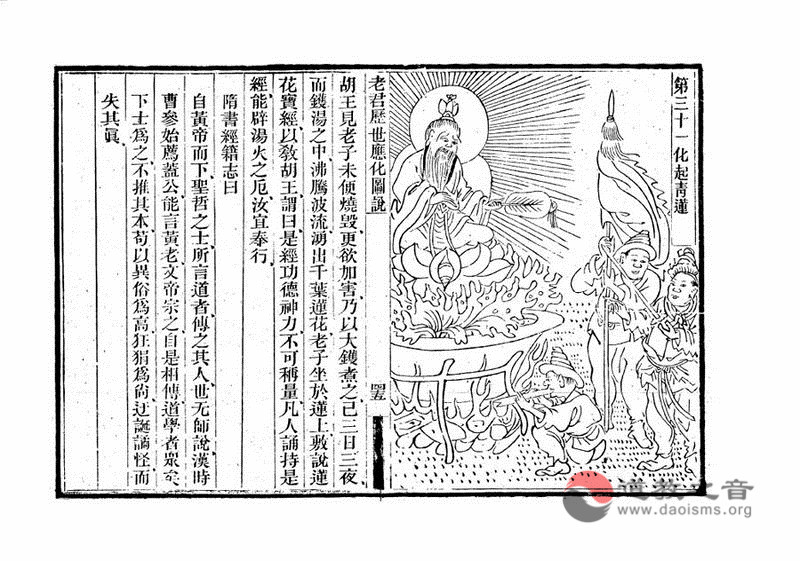 第三十一化起青蓮
老君歷世應化圖說
四五
胡王見老子未便燒毀更欲加害乃以大鑊煮之已三日三夜
而鑊湯之中沸騰波流湧出千葉蓮花老子坐於蓮上敷說蓮
花寶經以敎胡王謂曰是經功德神力不可稱量凡人誦持是
經能辟湯火之厄汝宜奉行
隋書經籍志曰
自黃帝而下聖哲之士所言道者傳之其人世无師說漢時
曹參始薦蓋公能言黃老文帝宗之自是相傳道學者眾矣
下士爲之不推其本苟以異俗爲高狂狷爲尚迂誕譎怪而
失其眞
道教之音
www.daoisms.org